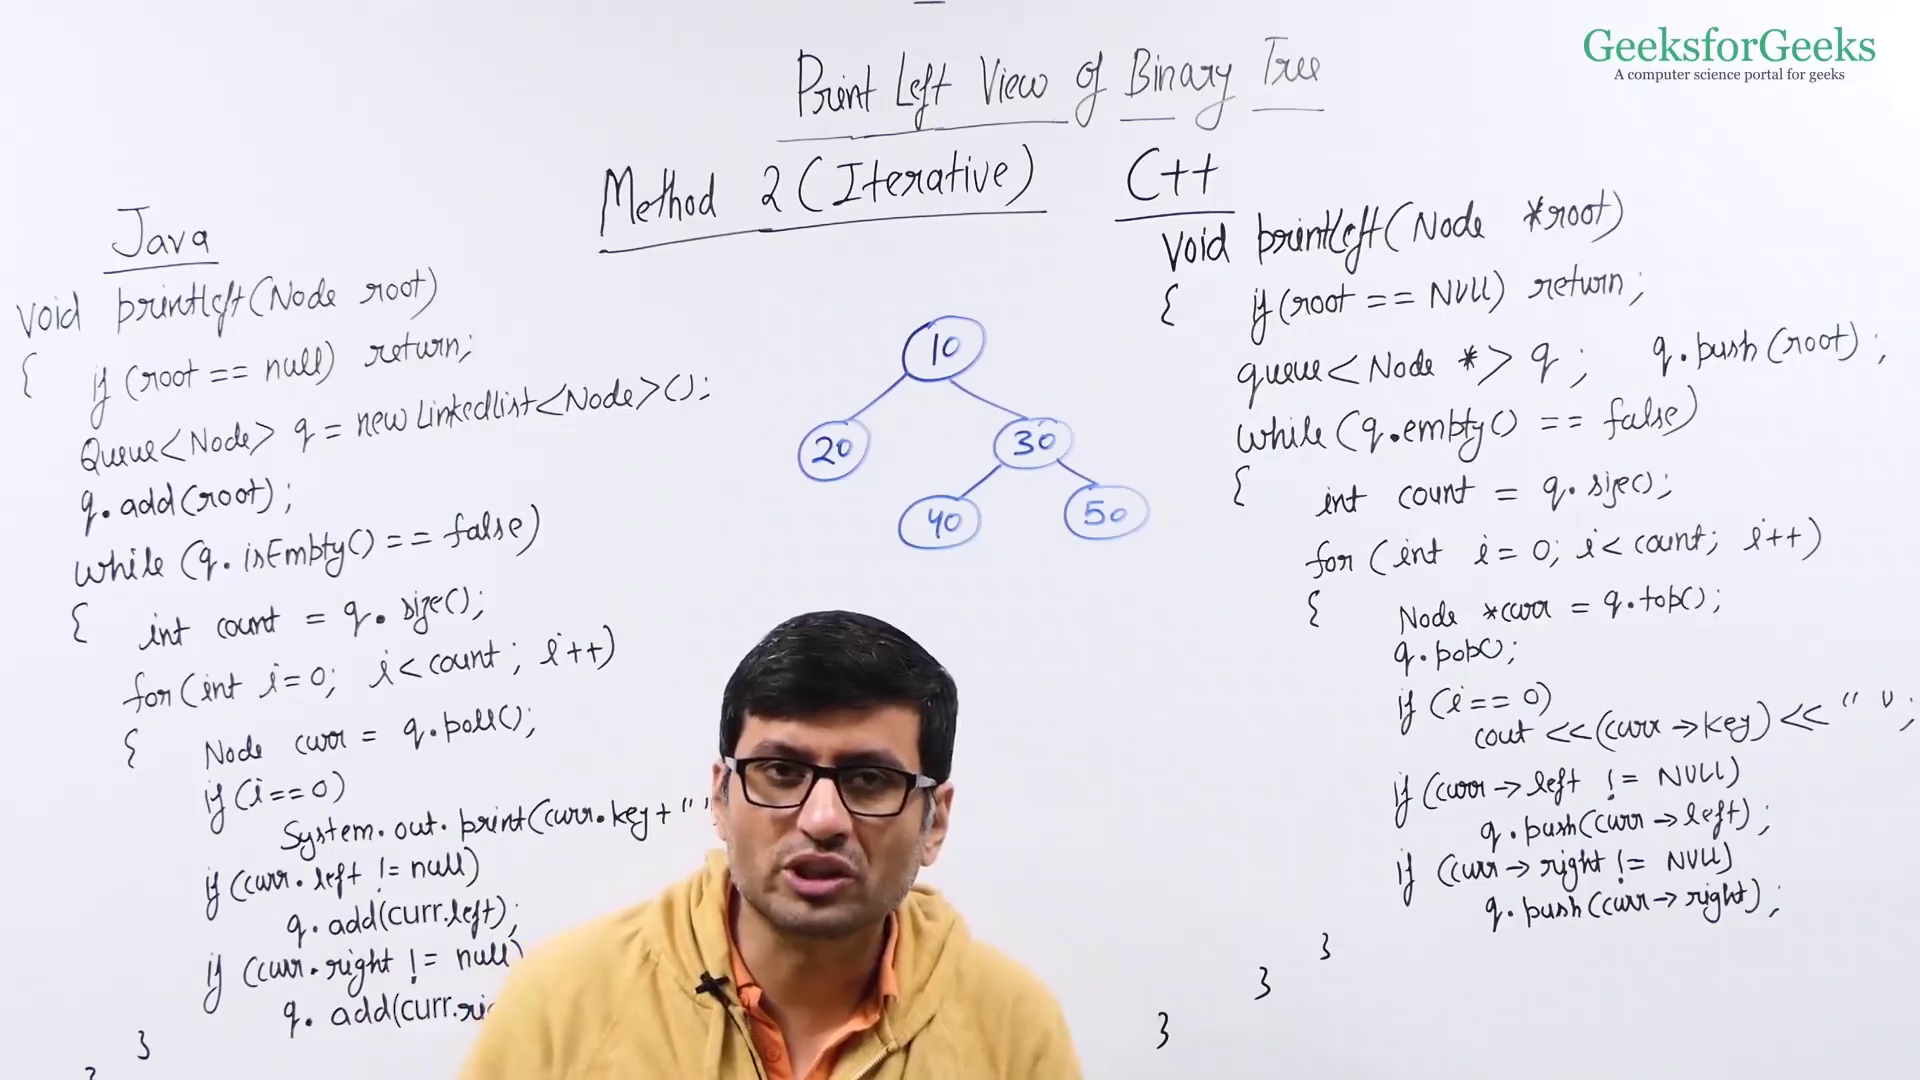 GeeksforGeeks
A computer science portal for geeks
Print Left View of Binary Tree
Method 2 (Iterative)
Java
void printLeft(Node root)
{ if (root == null) return;
Queue<Node> q = new LinkedList<Node>();
q.add(root);
while (q.isEmpty() == false)
{ int count = q.size();
for (int i=0; i<count; i++)
{ Node curr = q.poll();
if (i==0)
System.out.print(curr.key+" "
if (curr.left != null)
q.add(curr.left);
if (curr.right != null)
q.add(curr.ri
}
10
20 30
40 50
C++
void printLeft(Node *root)
{ if (root == NULL) return;
queue<Node *> q; q.push(root);
while (q.empty() == false)
{ int count = q.size();
for (int i = 0; i<count; i++)
{ Node *curr = q.top();
q.pop();
if (i==0)
cout <<(curr->key)<< " ";
if (curr->left != NULL)
q.push(curr->left);
if (curr->right != NULL)
q.push(curr->right);
}
}
}